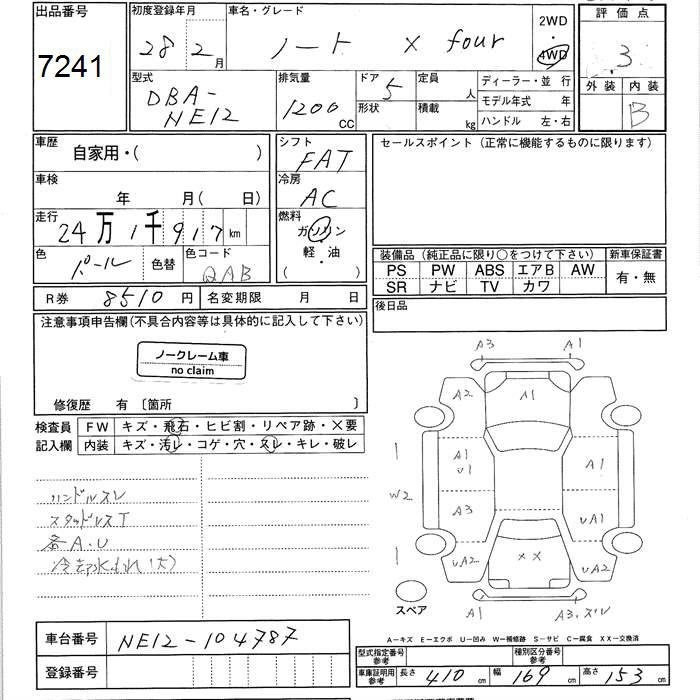 出品番号
7241
初度登録年月
28 2月
車名・グレード
ノート X four
2WD
・
4WD
評価点
3
外装 内装
B
型式
DBA-
NE12
排気量
1200
CC
ドア
5
形状
定員
人
積載
kg
ディーラー・並 行
モデル年式 年
ハンドル 左・右
車歴
自家用・( )
シフト
FAT
セールスポイント (正常に機能するものに限ります)
車検
年 月(日)
冷房
AC
走行
24万1千917km
燃料
ガソリン
軽・油
( )
色
パール
色替
色コード
QAB
装備品 (純正品に限り○をつけて下さい)
PS PW ABS エアB AW
SR ナビ TV カワ
新車保証書
有・無
R券 8510円
名変期限 月 日
後日品
注意事項申告欄(不具合内容等は具体的に記入して下さい)
ノークレーム車
no claim
修復歴 有 〔箇所 〕
検査員
記入欄
FW キズ・飛石・ヒビ割・リペア跡・×要
内装 キズ・汚レ・コゲ・穴・スレ・キレ・破レ
ハンドルスレ
スタッドレスT
各A.U
冷却水もれ(大)
A3 A1
A2 A1
A1
U1
A1
W2
A3
UA1
UA2
××
UA2
A1
A3.ズレ
スペア
A−キズ E−エクボ U−凹み W−補修跡 S−サビ C−腐食 XX−交換済
車台番号
NE12-104787
登録番号
型式指定番号
参考
種別区分番号
参考
車庫証明用
参考
長さ 410cm
幅 169cm
高さ 153cm